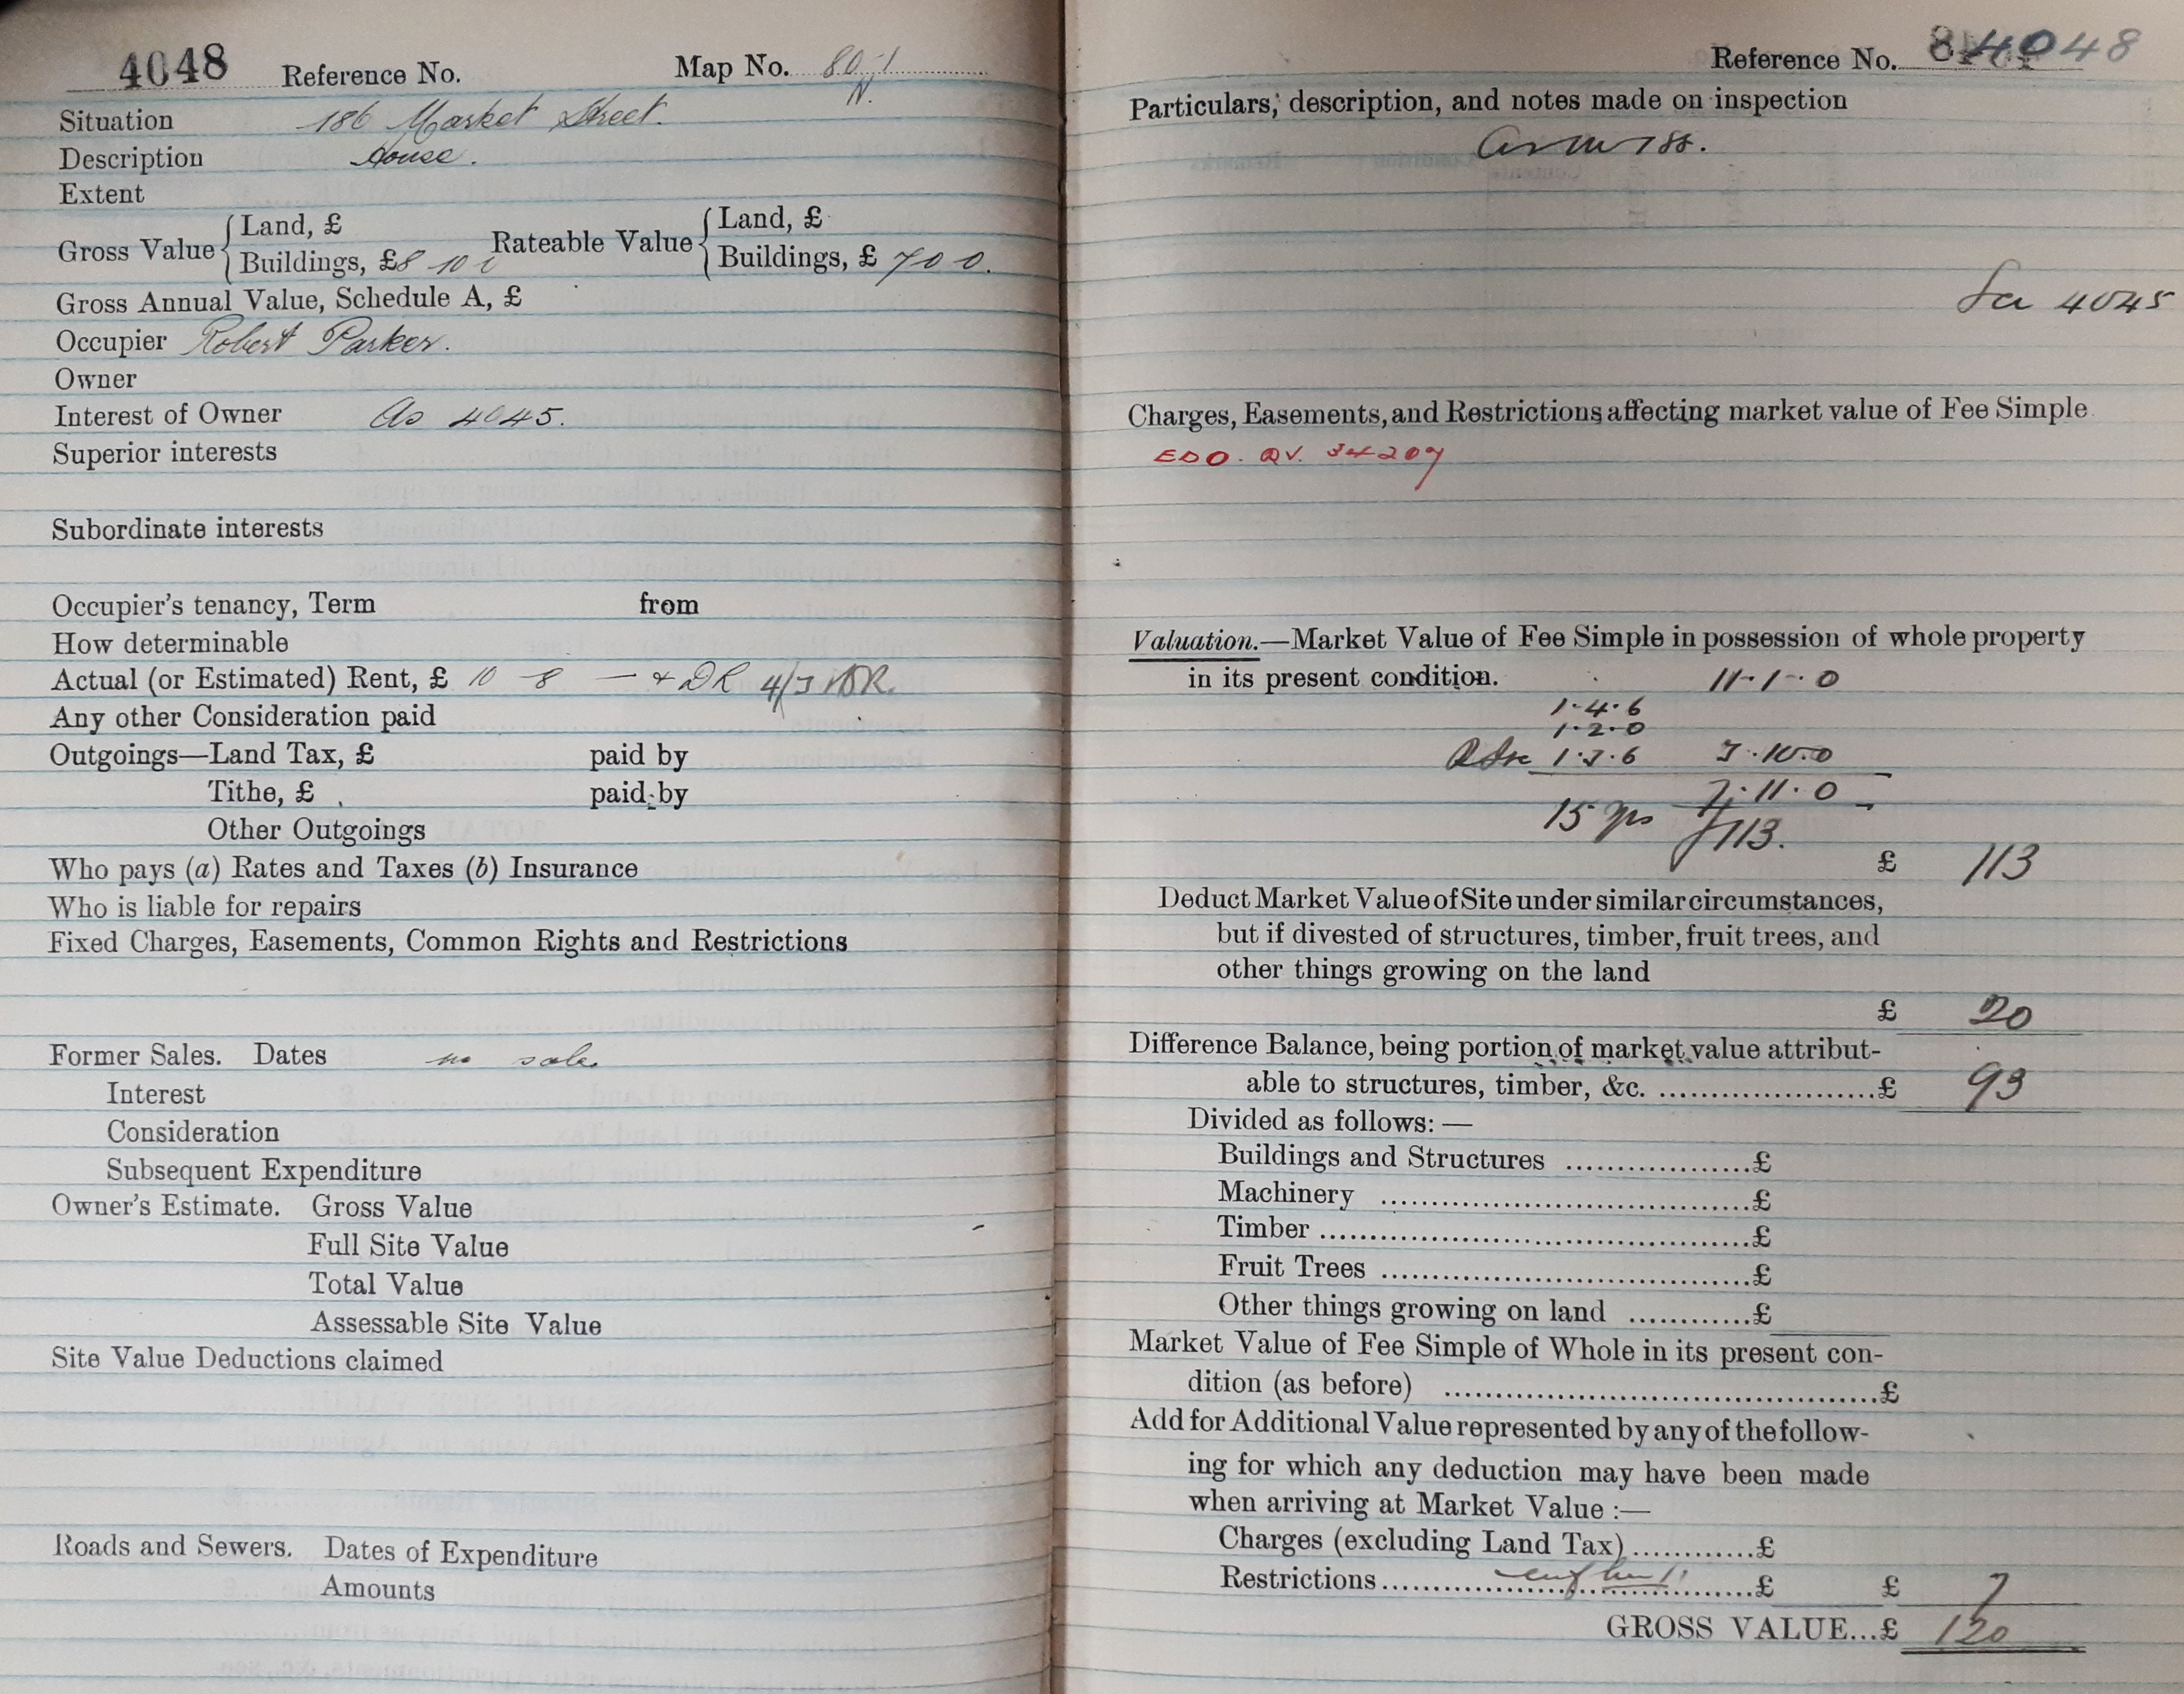 4048 Reference No. Map No. 80.1
N.
Situation 186 Market Street.
Description House.
Extent
Gross Value { Land, £
Buildings, £8 10
Rateable Value { Land, £
Buildings, £ 7 0 0.
Gross Annual Value, Schedule A, £
Occupier Robert Parker.
Owner
Interest of Owner As 4045.
Superior interests
Subordinate interests
Occupier's tenancy, Term from
How determinable
Actual (or Estimated) Rent, £ 10 8 — + DR 4/3 DR.
Any other Consideration paid
Outgoings—Land Tax, £ paid by
Tithe, £ paid by
Other Outgoings
Who pays (a) Rates and Taxes (b) Insurance
Who is liable for repairs
Fixed Charges, Easements, Common Rights and Restrictions
Former Sales. Dates no sale.
Interest
Consideration
Subsequent Expenditure
Owner's Estimate. Gross Value
Full Site Value
Total Value
Assessable Site Value
Site Value Deductions claimed
Roads and Sewers. Dates of Expenditure
Amounts
Reference No. 4048
Particulars, description, and notes made on inspection
as no 188.
See 4045
Charges, Easements, and Restrictions affecting market value of Fee Simple
EDO. QV. 34209
Valuation.—Market Value of Fee Simple in possession of whole property
in its present condition. 11-1-0
1.4.6
1.2.0
1.3.6 3.10.0
7.11.0
15 yrs £113.
£ 113
Deduct Market Value of Site under similar circumstances,
but if divested of structures, timber, fruit trees, and
other things growing on the land
£ 20
Difference Balance, being portion of market value attribut-
able to structures, timber, &c. ....................£ 93
Divided as follows:—
Buildings and Structures ..................£
Machinery ....................................£
Timber..........................................£
Fruit Trees ....................................£
Other things growing on land ............£
Market Value of Fee Simple of Whole in its present con-
dition (as before) ..........................................£
Add for Additional Value represented by any of the follow-
ing for which any deduction may have been made
when arriving at Market Value :—
Charges (excluding Land Tax)............£
Restrictions....................................£ £ 7
GROSS VALUE...£ 120